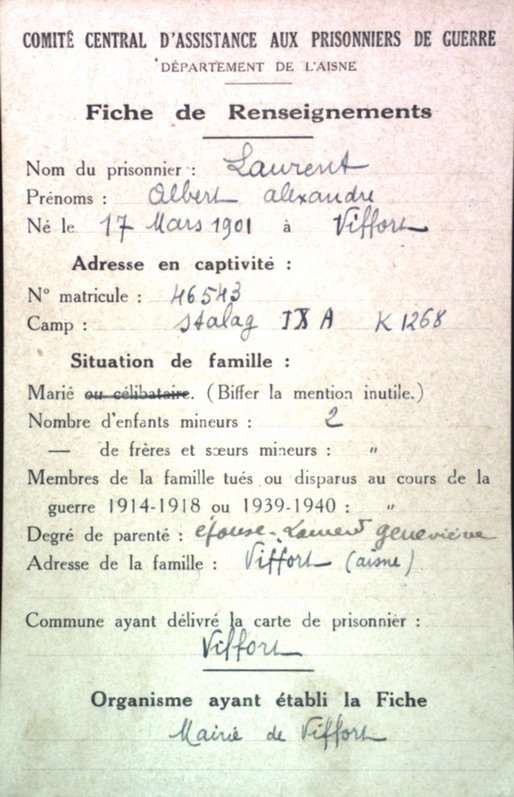 COMITÉ CENTRAL D'ASSISTANCE AUX PRISONNIERS DE GUERRE
DÉPARTEMENT DE L'AISNE
Fiche de Renseignements
Nom du prisonnier : Laurent
Prénoms : Albert alexandre
Né le 17 Mars 1901 à Viffort
Adresse en captivité :
N° matricule : 46543
Camp : Stalag IX A K 1268
Situation de famille :
Marié ou célibataire. (Biffer la mention inutile.)
Nombre d'enfants mineurs : 2
— de frères et sœurs mineurs : "
Membres de la famille tués ou disparus au cours de la
guerre 1914-1918 ou 1939-1940 : "
Degré de parenté : épouse. Laurent geneviève
Adresse de la famille : Viffort (aisne)
Commune ayant délivré la carte de prisonnier :
Viffort
Organisme ayant établi la Fiche
Mairie de Viffort